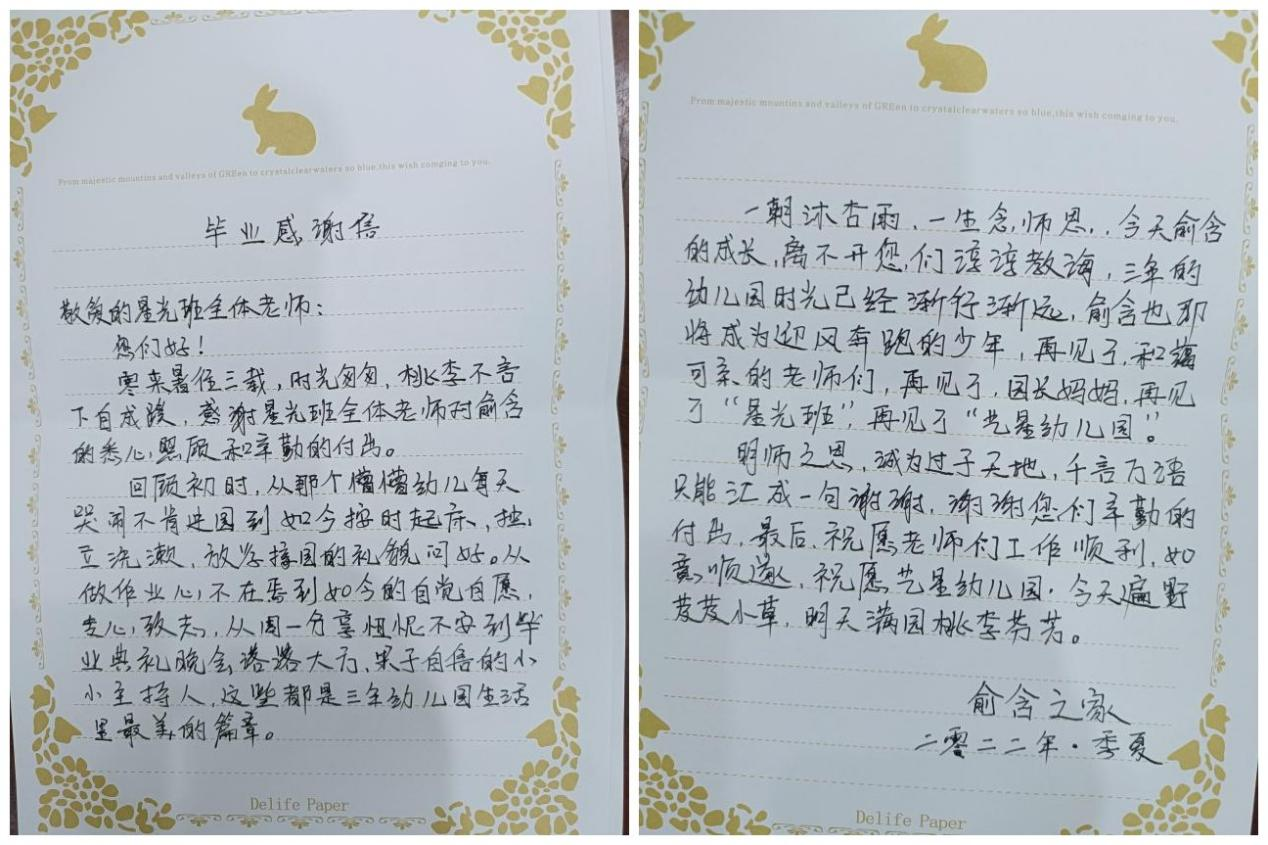 From majestic mountins and valleys of GREen to crystalclearwaters so blue,this wish comging to you.
毕业感谢信
敬爱的星光班全体老师：
您们好！
寒来暑往三载，时光匆匆，桃李不言
下自成蹊，感谢星光班全体老师对俞含
的悉心照顾和辛勤的付出。
回顾初时，从那个懵懂幼儿每天
哭闹不肯进园到如今按时起床，独
立洗漱，放学接园的礼貌问好。从
做作业心不在焉到如今的自觉自愿，
专心致志，从周一分享忸怩不安到毕
业典礼晚会落落大方，果子自信的小
小主持人，这些都是三年幼儿园生活
里最美的篇章。
Delife Paper
From majestic mountins and valleys of GREen to crystalclearwaters so blue,this wish comging to you.
一朝沐杏雨，一生念师恩，今天俞含
的成长，离不开您们谆谆教诲，三年的
幼儿园时光已经渐行渐远，俞含也即
将成为迎风奔跑的少年，再见了，和蔼
可亲的老师们，再见了，园长妈妈，再见
了“星光班”，再见了“艺星幼儿园”。
明师之恩，诚为过于天地，千言万语
只能汇成一句谢谢，谢谢您们辛勤的
付出，最后，祝愿老师们工作顺利，如
意顺遂，祝愿艺星幼儿园·今天遍野
芨芨小草，明天满园桃李芬芳。
俞含之家
二零二二年·季夏
Delife Paper